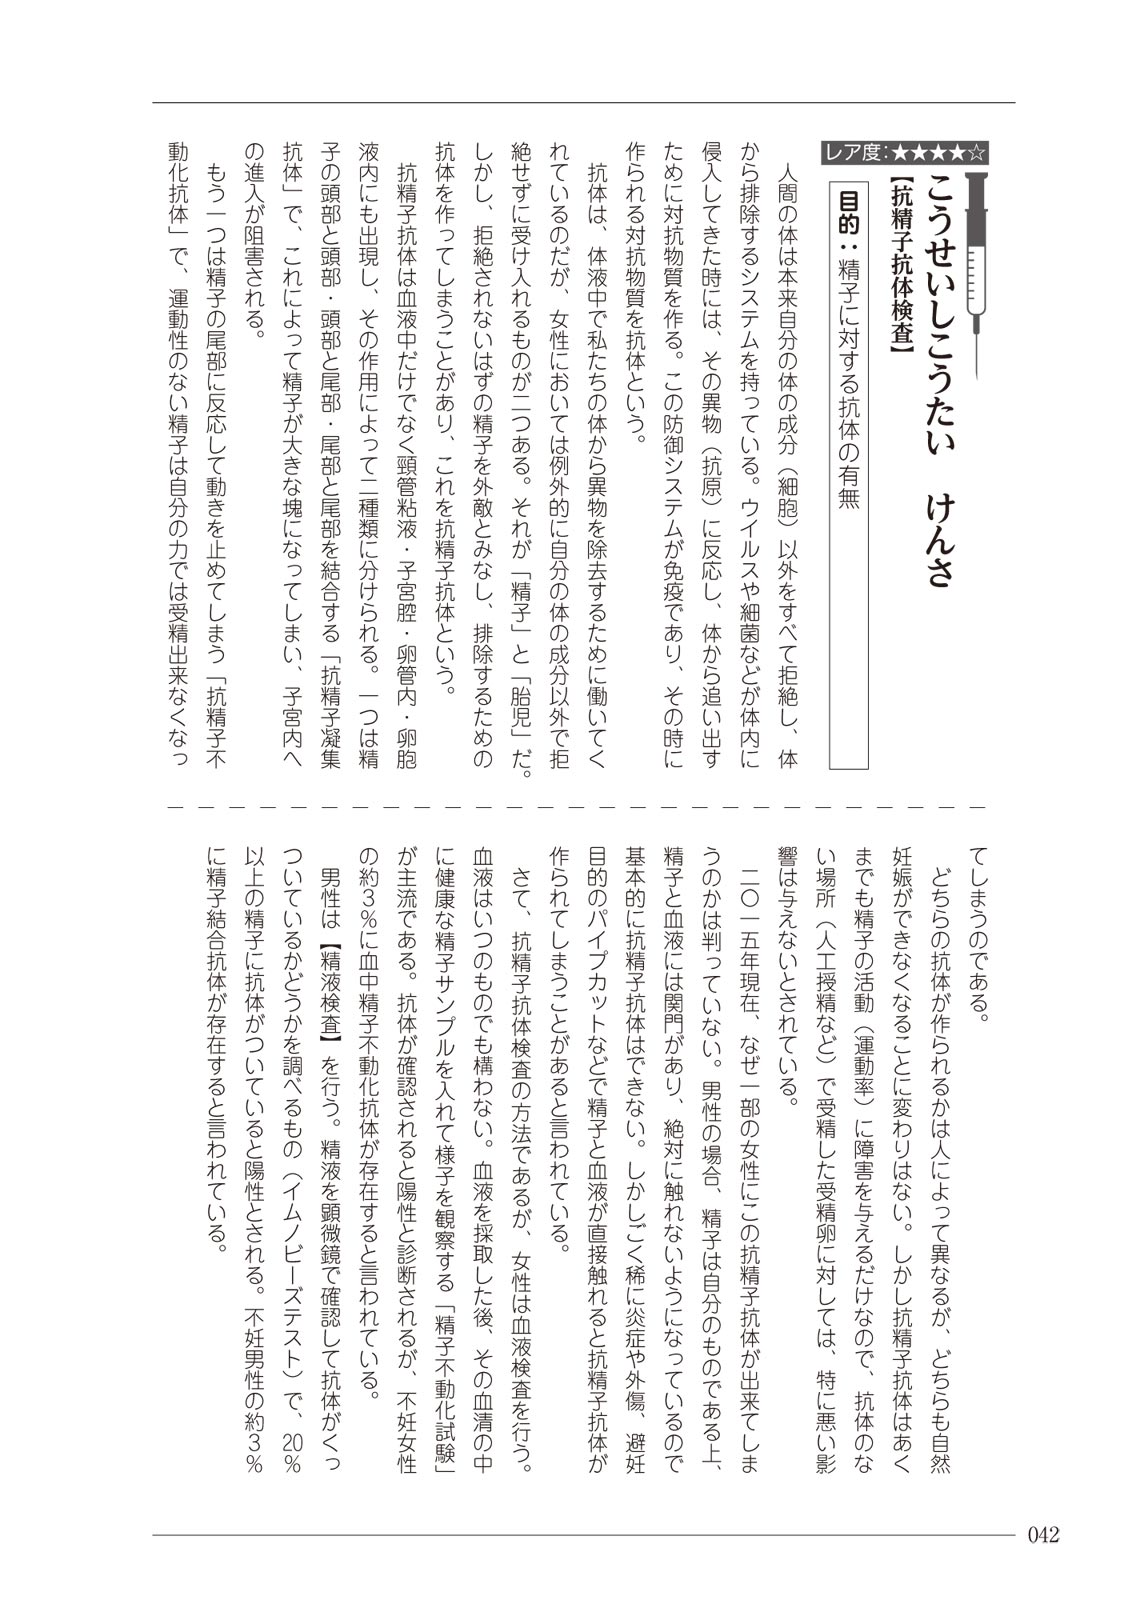 レア度:★★★★☆
こうせいしこうたい　けんさ
【抗精子抗体検査】
目的：精子に対する抗体の有無
　人間の体は本来自分の体の成分（細胞）以外をすべて拒絶し、体
から排除するシステムを持っている。ウイルスや細菌などが体内に
侵入してきた時には、その異物（抗原）に反応し、体から追い出す
ために対抗物質を作る。この防御システムが免疫であり、その時に
作られる対抗物質を抗体という。
　抗体は、体液中で私たちの体から異物を除去するために働いてく
れているのだが、女性においては例外的に自分の体の成分以外で拒
絶せずに受け入れるものが二つある。それが「精子」と「胎児」だ。
しかし、拒絶されないはずの精子を外敵とみなし、排除するための
抗体を作ってしまうことがあり、これを抗精子抗体という。
　抗精子抗体は血液中だけでなく頸管粘液・子宮腔・卵管内・卵胞
液内にも出現し、その作用によって二種類に分けられる。一つは精
子の頭部と頭部・頭部と尾部・尾部と尾部を結合する「抗精子凝集
抗体」で、これによって精子が大きな塊になってしまい、子宮内へ
の進入が阻害される。
　もう一つは精子の尾部に反応して動きを止めてしまう「抗精子不
動化抗体」で、運動性のない精子は自分の力では受精出来なくなっ
てしまうのである。
　どちらの抗体が作られるかは人によって異なるが、どちらも自然
妊娠ができなくなることに変わりはない。しかし抗精子抗体はあく
までも精子の活動（運動率）に障害を与えるだけなので、抗体のな
い場所（人工授精など）で受精した受精卵に対しては、特に悪い影
響は与えないとされている。
　二〇一五年現在、なぜ一部の女性にこの抗精子抗体が出来てしま
うのかは判っていない。男性の場合、精子は自分のものである上、
精子と血液には関門があり、絶対に触れないようになっているので
基本的に抗精子抗体はできない。しかしごく稀に炎症や外傷、避妊
目的のパイプカットなどで精子と血液が直接触れると抗精子抗体が
作られてしまうことがあると言われている。
　さて、抗精子抗体検査の方法であるが、女性は血液検査を行う。
血液はいつのものでも構わない。血液を採取した後、その血清の中
に健康な精子サンプルを入れて様子を観察する「精子不動化試験」
が主流である。抗体が確認されると陽性と診断されるが、不妊女性
の約３％に血中精子不動化抗体が存在すると言われている。
　男性は【精液検査】を行う。精液を顕微鏡で確認して抗体がくっ
ついているかどうかを調べるもの（イムノビーズテスト）で、20％
以上の精子に抗体がついていると陽性とされる。不妊男性の約３％
に精子結合抗体が存在すると言われている。
042